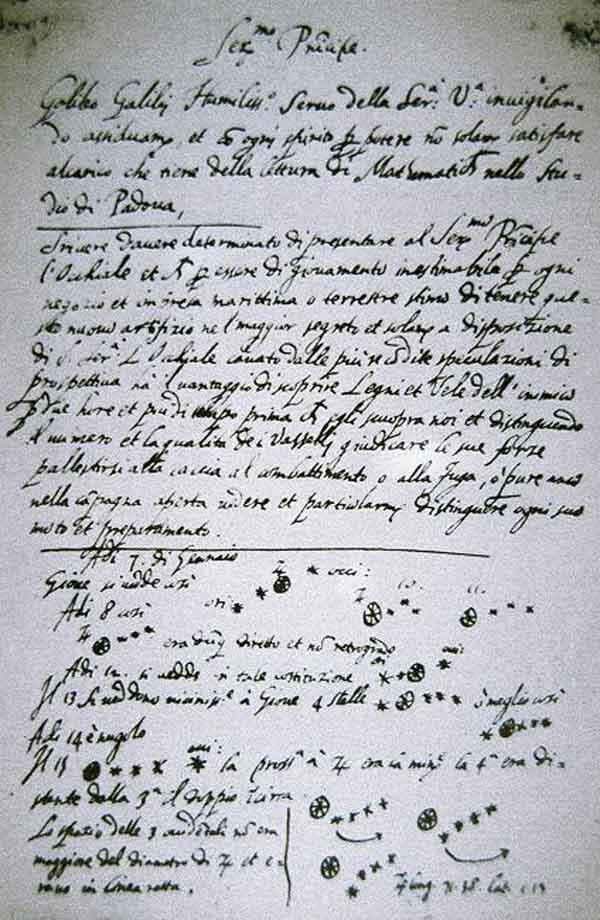 Ser.mo Principe.
Galileo Galilei Humiliss.o Servo della Ser.a V.a invigilan-
do assiduam.te, et cō ogni spirito p potere nō solam.te satisfare
alcarico che tiene della lettura di Mathematiche nello Stu-
dio di Padova,
Scrivere davere determinato di presentare al Ser.mo Principe
l'Occhiale et p essere di giovamento inestimabile p ogni
negozio et impresa marittima o terrestre stimo di tenere que-
sto nuovo artifizio nel maggior segreto et solam.te a disposizione
di S. Ser.a L'Occhiale cavato dalle più recōdite speculazioni di
prospettiva hà il vantaggio di scoprire Legni et Vele dell'inimico
p due hore et più di tempo prima che egli scuopra noi et distinguendo
il numero et la qualità de i Vasselli giudicare le sue forze
pallestirsi alla caccia al combattimento o alla fuga, ò pure anco
nella cāpagna aperta vedere et particolarm.te distinguere ogni suo
moto et preparamento.
Adi 7. di Gennaio
Gione si vedde così occi:
Adi 8 così ori: 10. 11.
era dūq diretto et nō retrogrado
Adi 12. si vedde in tale costituzione ori occi:
Il 13 si veddono vicinissi.e à Giove 4 stelle ò meglio così
Adi 14 è nugolo
Il 15 occi: la pross.a à 4 era la min.e la 4.a era di-
stante dalla 3.a il doppio Circa
Lo spatio delle 3 occidētali nō era
maggiore del diametro di 4 et e-
rano in linea retta.
long. 71. 38. Lat. 1. 13